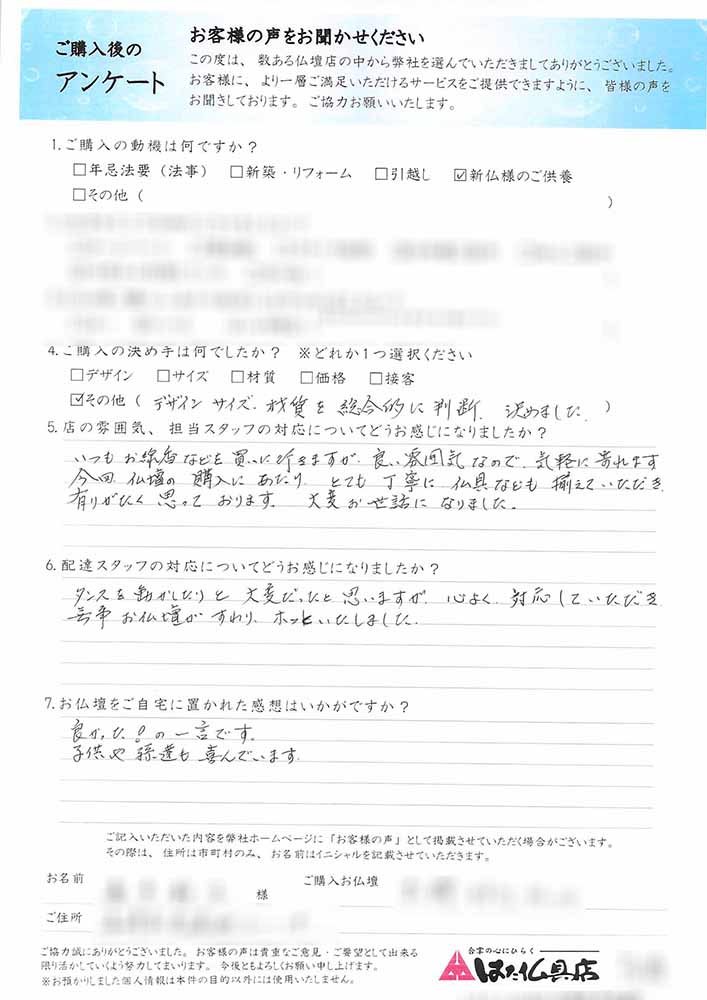 ご購入後の
アンケート
お客様の声をお聞かせください
この度は、数ある仏壇店の中から弊社を選んでいただきましてありがとうございました。
お客様に、より一層ご満足いただけるサービスをご提供できますように、皆様の声を
お聞きしております。ご協力お願いいたします。
1.ご購入の動機は何ですか？
□年忌法要（法事） □新築・リフォーム □引越し ☑新仏様のご供養
□その他（ ）
4.ご購入の決め手は何でしたか？ ※どれか1つ選択ください
□デザイン □サイズ □材質 □価格 □接客
☑その他（デザイン サイズ、材質を総合的に判断、決めました。）
5.店の雰囲気、担当スタッフの対応についてどうお感じになりましたか？
いつもお線香などを買いに行きますが、良い雰囲気なので、気軽に寄れます
今回 仏壇の購入にあたり とても丁寧に仏具なども揃えていただき
有りがたく思っております。大変お世話になりました。
6.配達スタッフの対応についてどうお感じになりましたか？
タンスを動かしたりと大変だったと思いますが、心よく対応していただき
無事お仏壇がすわり、ホッといたしました。
7.お仏壇をご自宅に置かれた感想はいかがですか？
良かった！の一言です。
子供や孫達も喜んでいます。
ご記入いただいた内容を弊社ホームページに「お客様の声」として掲載させていただく場合がございます。
その際は、住所は市町村のみ、お名前はイニシャルを記載させていただきます。
お名前 様 ご購入お仏壇
ご住所
ご協力誠にありがとうございました。お客様の声は貴重なご意見・ご要望として出来る
限り活かしていくよう努力してまいります。今後ともよろしくお願い申し上げます。
※お預かりしました個人情報は本件の目的以外には使用いたしません。
合掌の心にひらく
はた仏具店